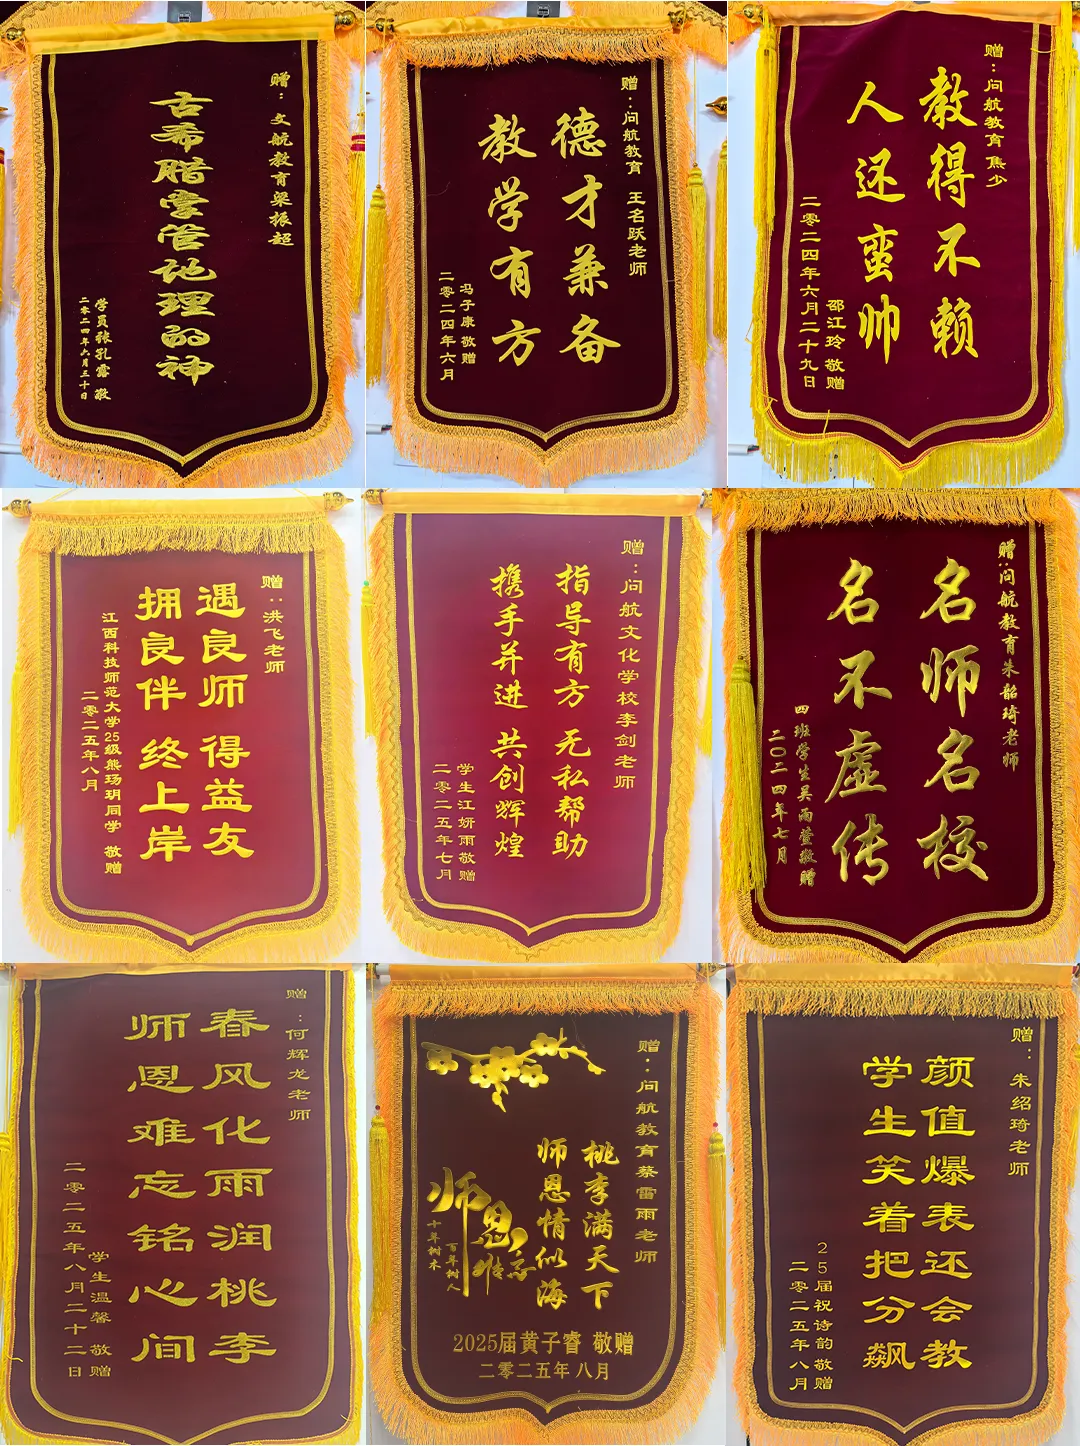 赠：文航教育梁振超
古希腊掌管地理的神
学员张孔霖 敬
二零二四年六月三十日
赠：问航教育 王名跃老师
德才兼备
教学有方
冯子康 敬赠
二零二四年六月
赠：问航教育焦少
教得不赖
人还蛮帅
邵江玲 敬赠
二零二四年六月二十九日
赠：洪飞老师
遇良师 得益友
拥良伴 终上岸
江西科技师范大学25级熊玚玥同学 敬赠
二零二五年八月
赠：问航文化学校李剑老师
指导有方 无私帮助
携手并进 共创辉煌
学生江妍雨敬赠
二零二五年七月
赠：问航教育朱韶琦老师
名师名校
名不虚传
四班学生吴雨萱敬赠
二〇二四年七月
赠：何辉龙老师
春风化雨润桃李
师恩难忘铭心间
学生温馨 敬赠
二零二五年八月二十二日
赠：问航教育蔡雷雨老师
桃李满天下
师恩情似海
师恩难忘
十年树木
百年树人
2025届黄子睿 敬赠
二零二五年八月
赠：朱绍琦老师
颜值爆表还会教
学生笑着把分飙
25届祝诗韵敬赠
二零二五年八月